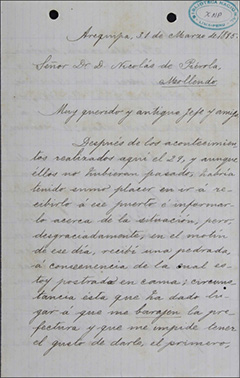 BIBLIOTECA NACIONAL
Arequipa, 31 de Marzo de 1885.
Señor Dr. D. Nicolás de Piérola,
Mollendo.
Muy querido y antiguo Jefe y amigo
Después de los acontecimien-
tos realizados aquí el 29, y aunque
ellos no hubiesen pasado, habría
tenido sumo placer en ir á re-
cibirlo á ese puerto é informar-
lo acerca de la situación; pero,
desgraciadamente, en el motin
de ese día, recibí una pedrada,
á consecuencia de la cual es-
toy postrado en cama; circuns-
tancia esta que ha dado lu-
gar á que me barajen la pre-
fectura y que me impide tener
el gusto de darle, el primero,